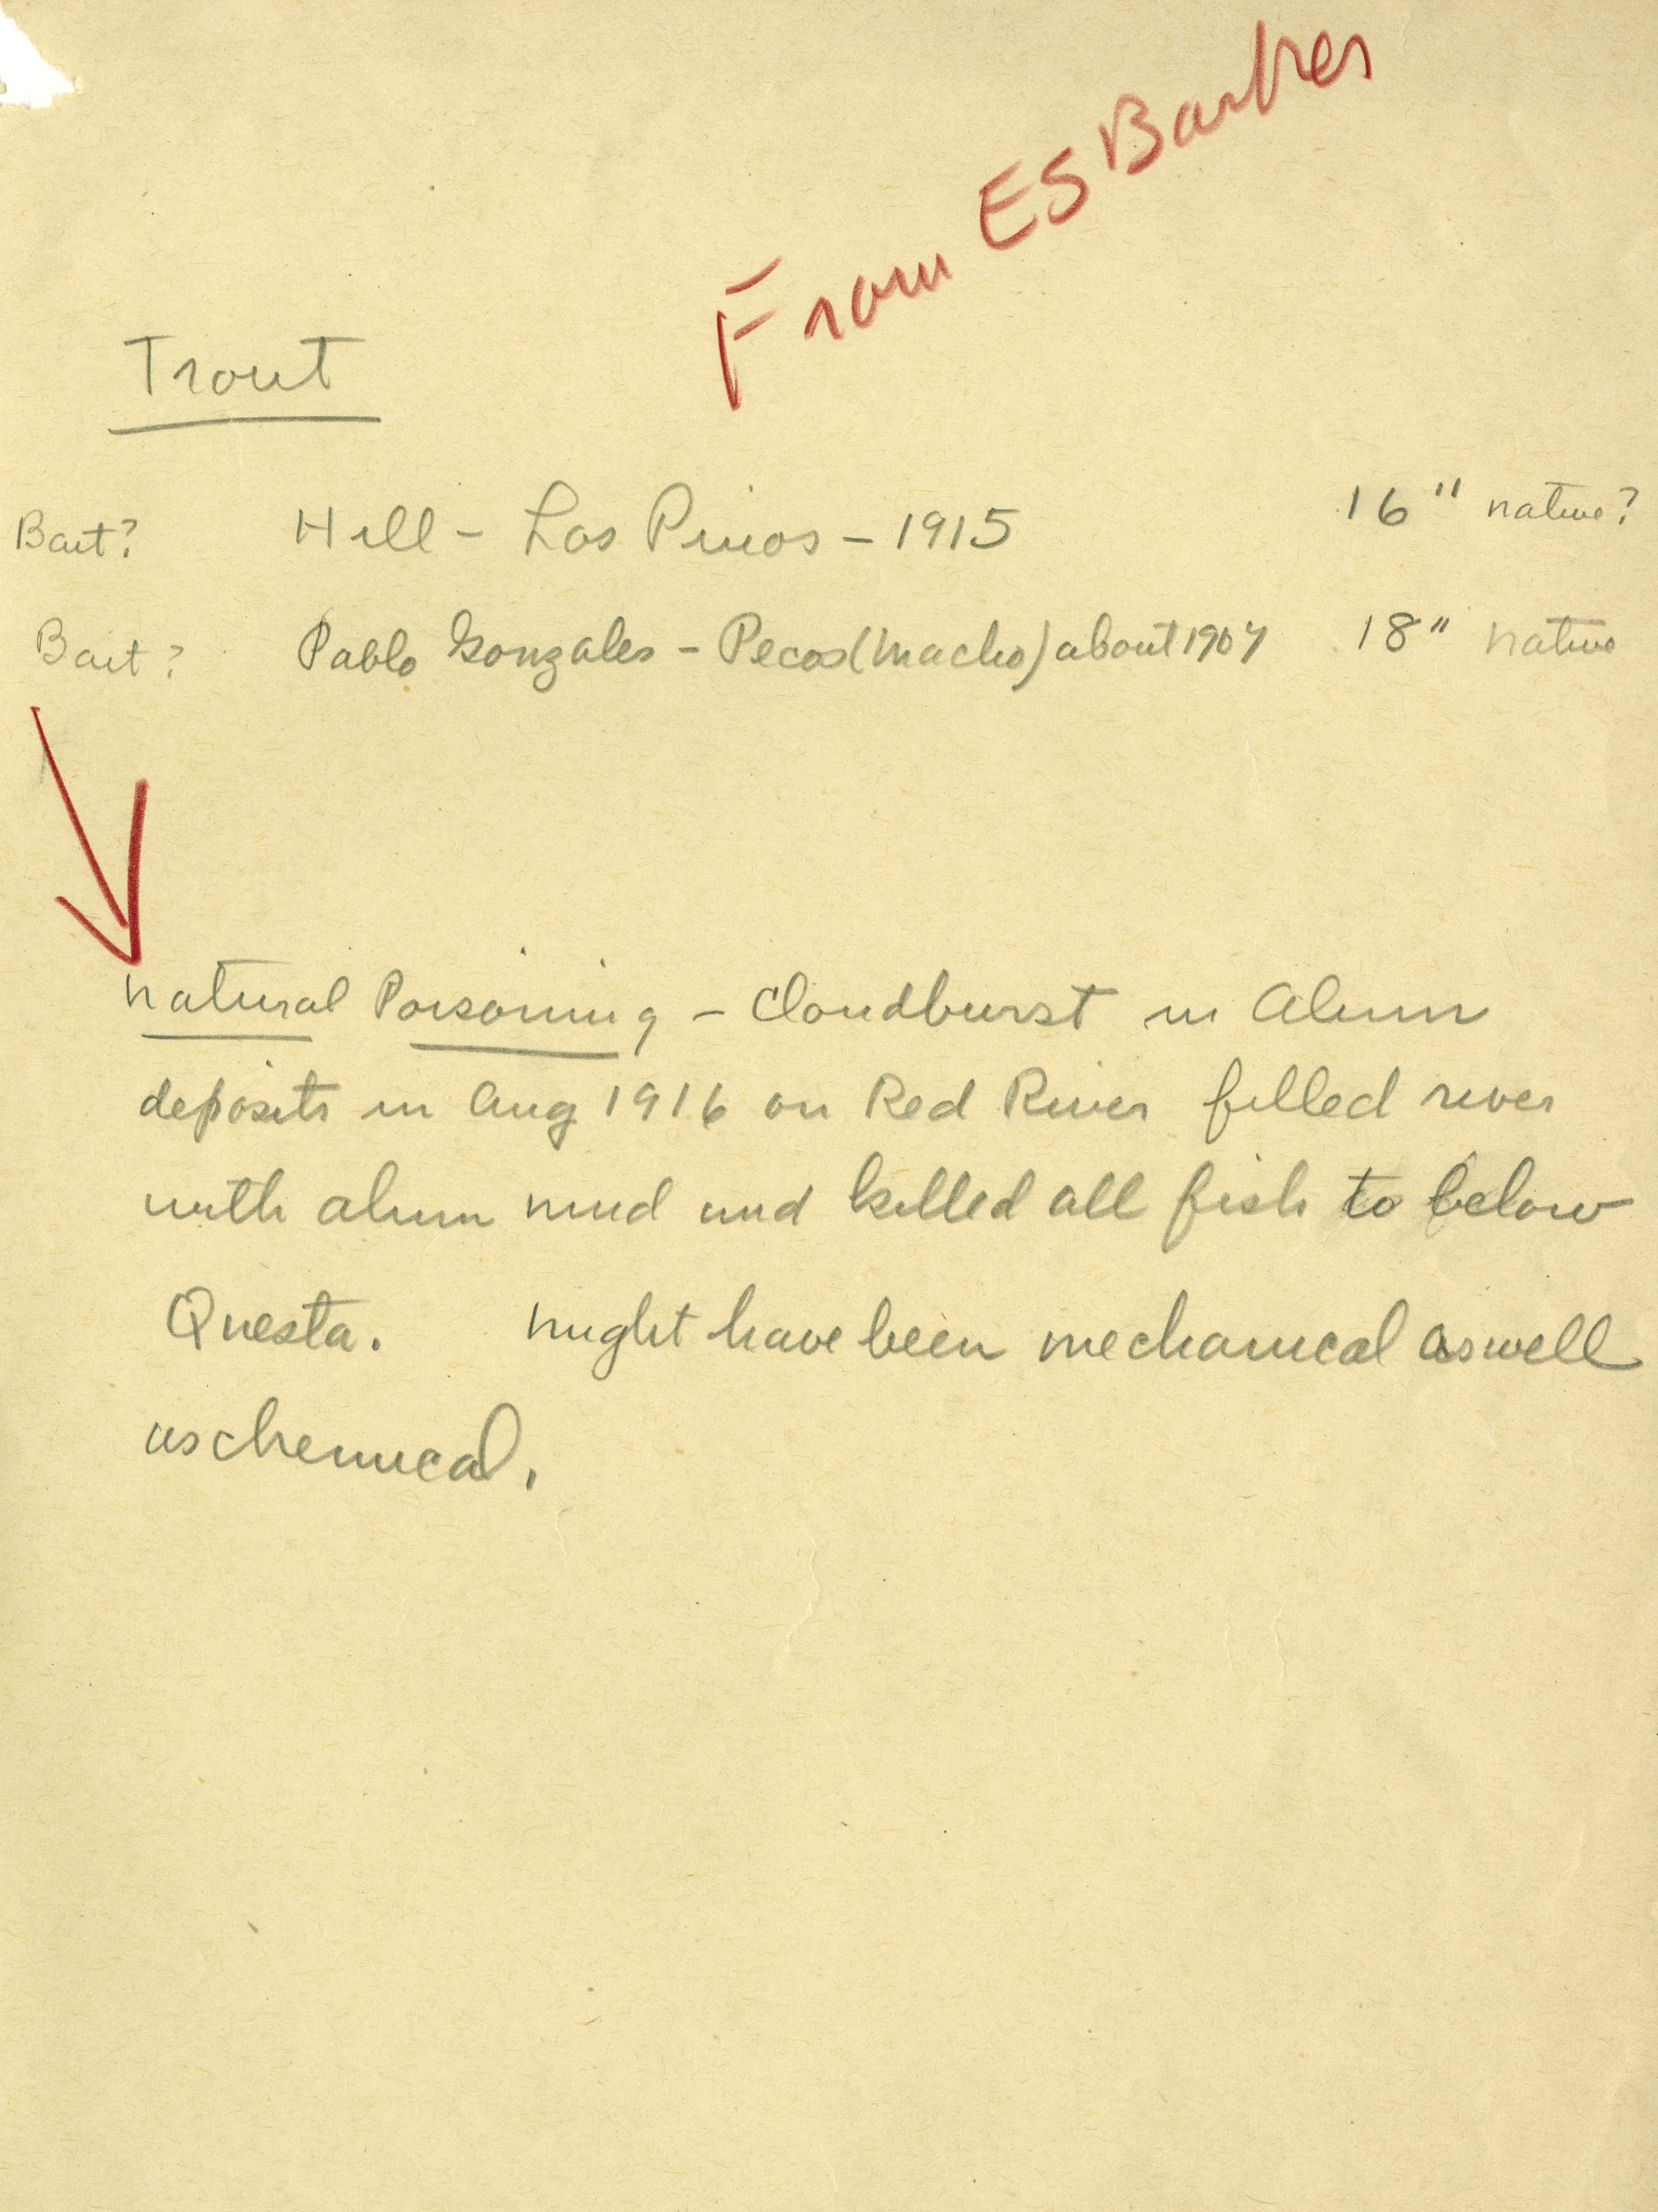 From ES Barker
Trout
Bait? Hill - Los Pinos - 1915 16" native?
Bait? Pablo Gonzales - Pecos (Macho) about 1907 18" native
Natural Poisoning - Cloudburst in Alum
deposits in Aug 1916 on Red River filled river
with alum mud and killed all fish to below
Questa. Might have been mechanical as well
as chemical.